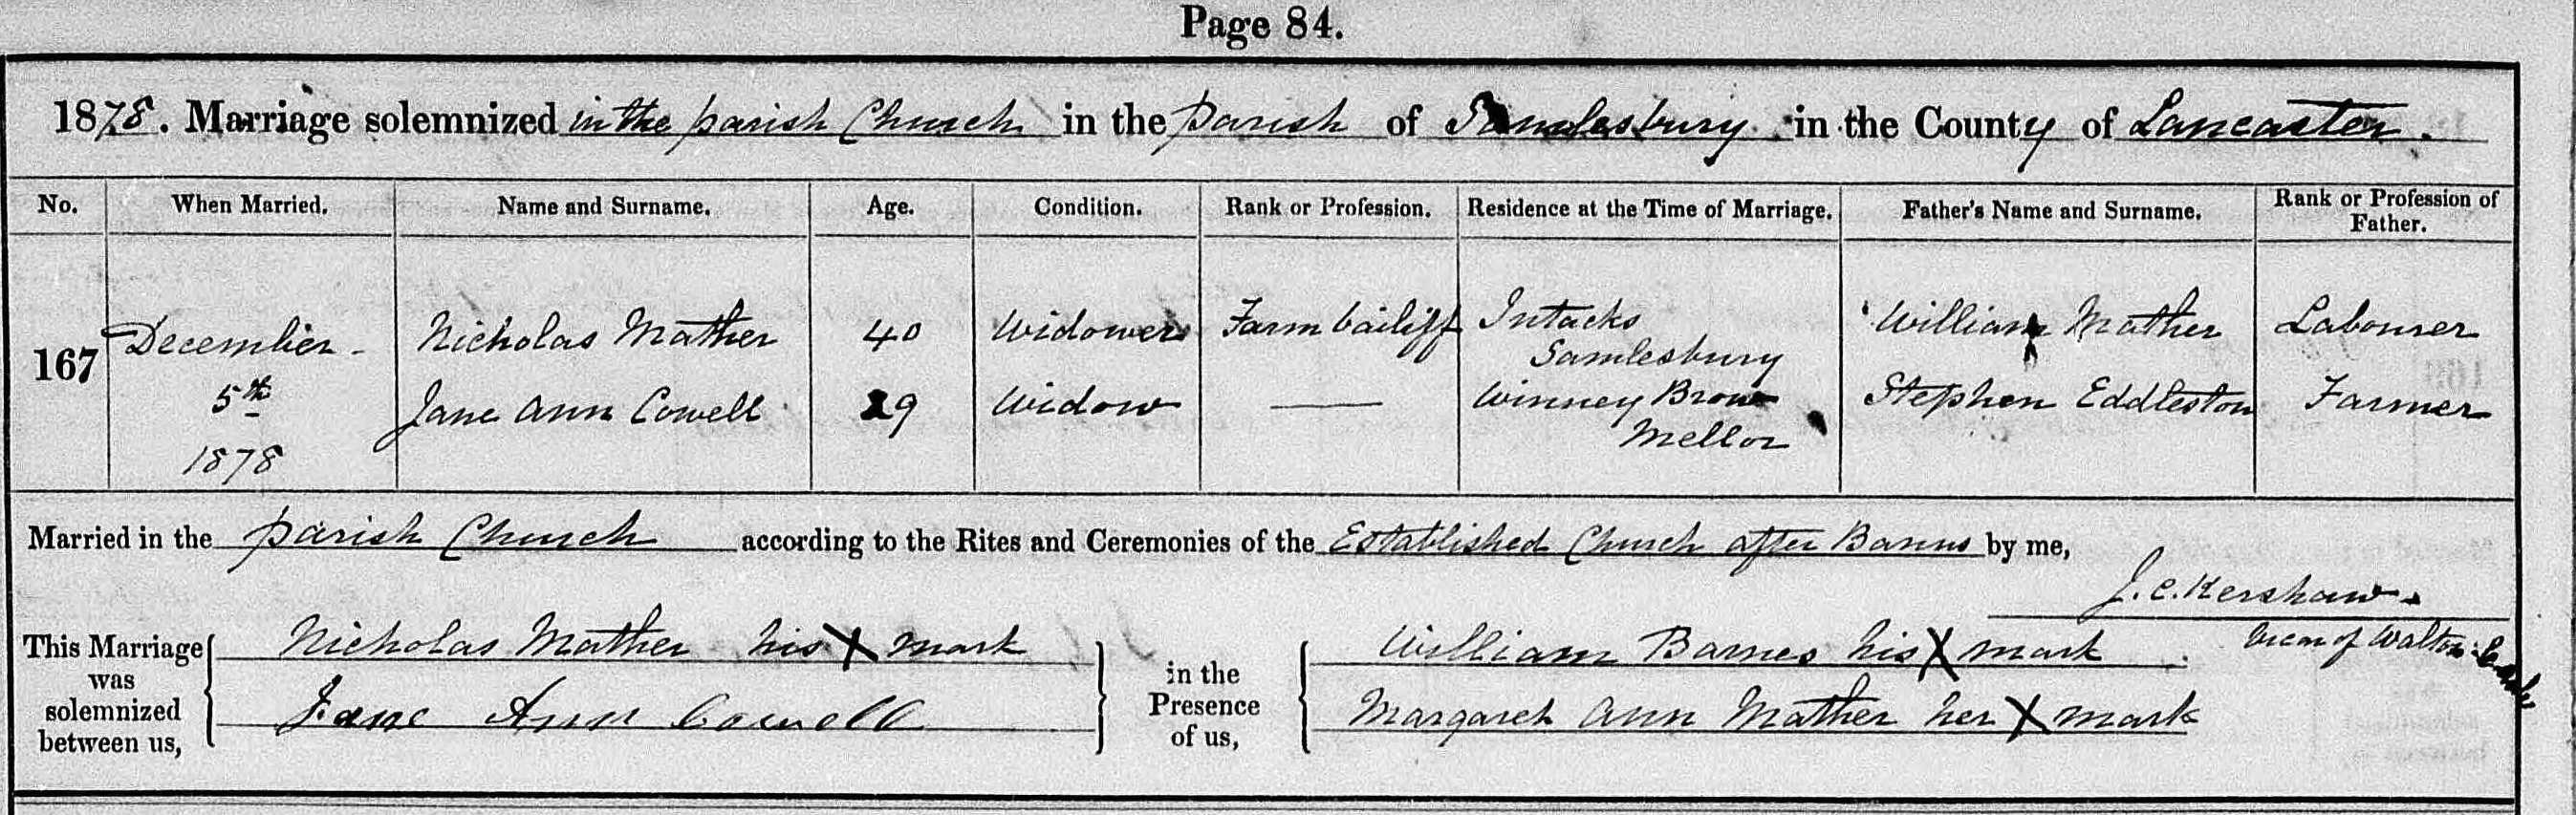 Page 84.
1878. Marriage solemnized in the parish Church in the parish of Samlesbury in the County of Lancaster.
No. When Married. Name and Surname. Age. Condition. Rank or Profession. Residence at the Time of Marriage. Father's Name and Surname. Rank or Profession of Father.
167 December 5th 1878
Nicholas Mather 40 Widower Farm bailiff Intacks Samlesbury William Mather Labourer
Jane Ann Cowell 29 Widow — Winney Brow Mellor Stephen Eddleston Farmer
Married in the parish Church according to the Rites and Ceremonies of the Established Church after Banns by me,
J. C. Kershaw
Vicar of Walton-le-Dale
This Marriage was solemnized between us,
Nicholas Mather his X mark
Jane Ann Cowell
in the Presence of us,
William Barnes his X mark
Margaret Ann Mather her X mark